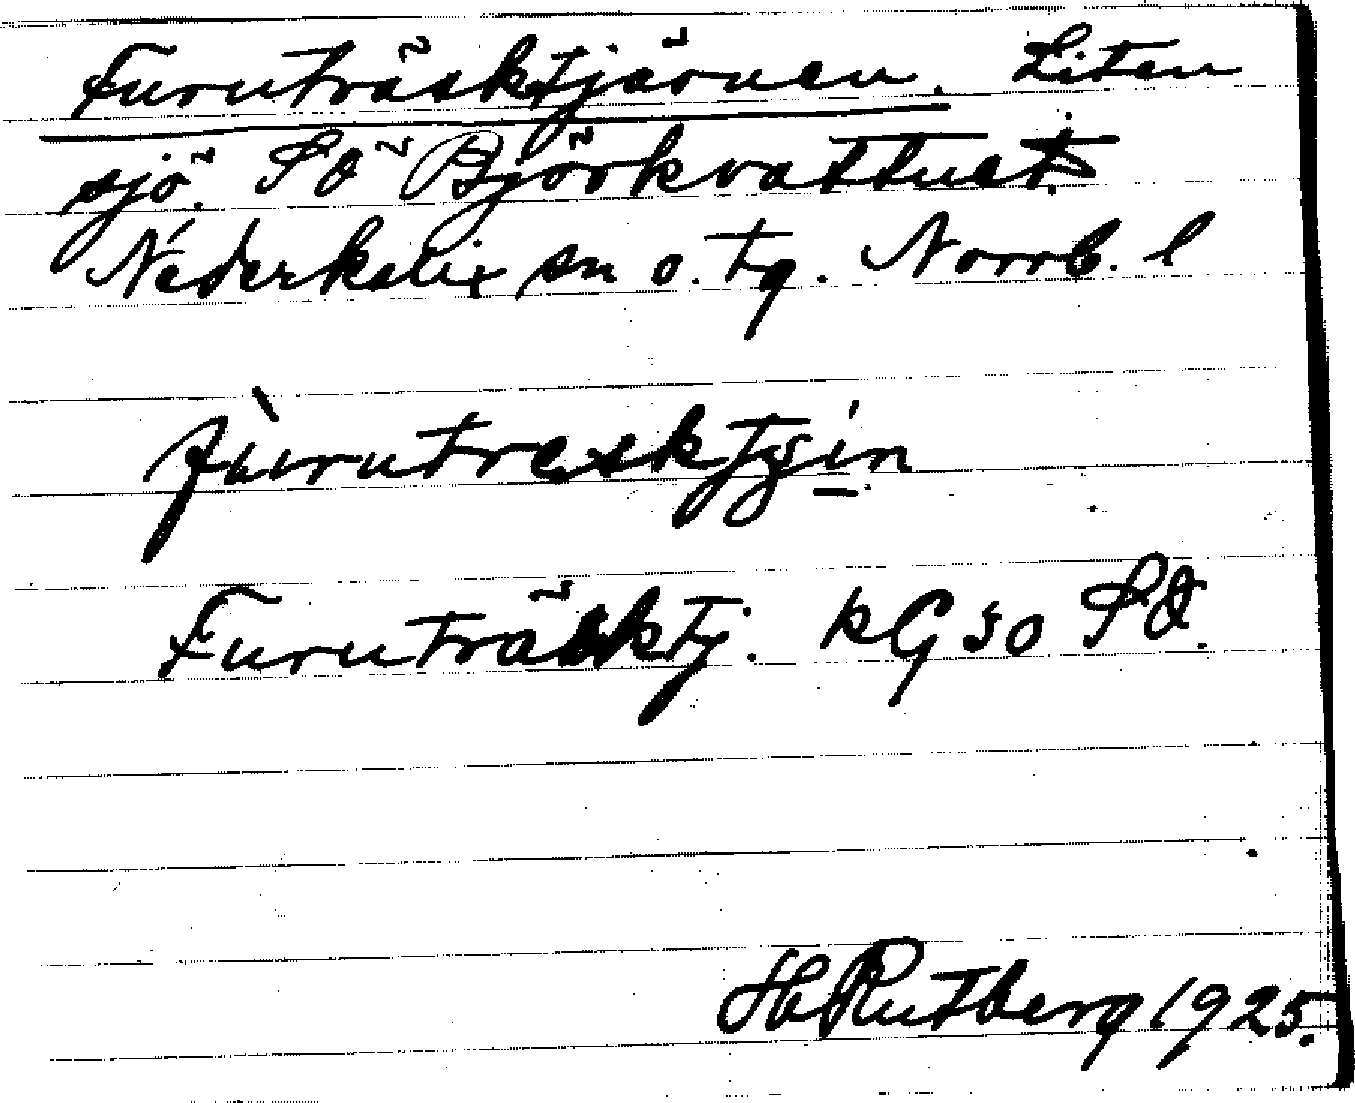 Furuträsktjärnen. Liten
sjö. SO Björkvattnet.
Nederkalix sn o. tg. Norrb. l
fùrutresktjín
Furuträsktj. kG 50 SO.
H Rutberg 1925.